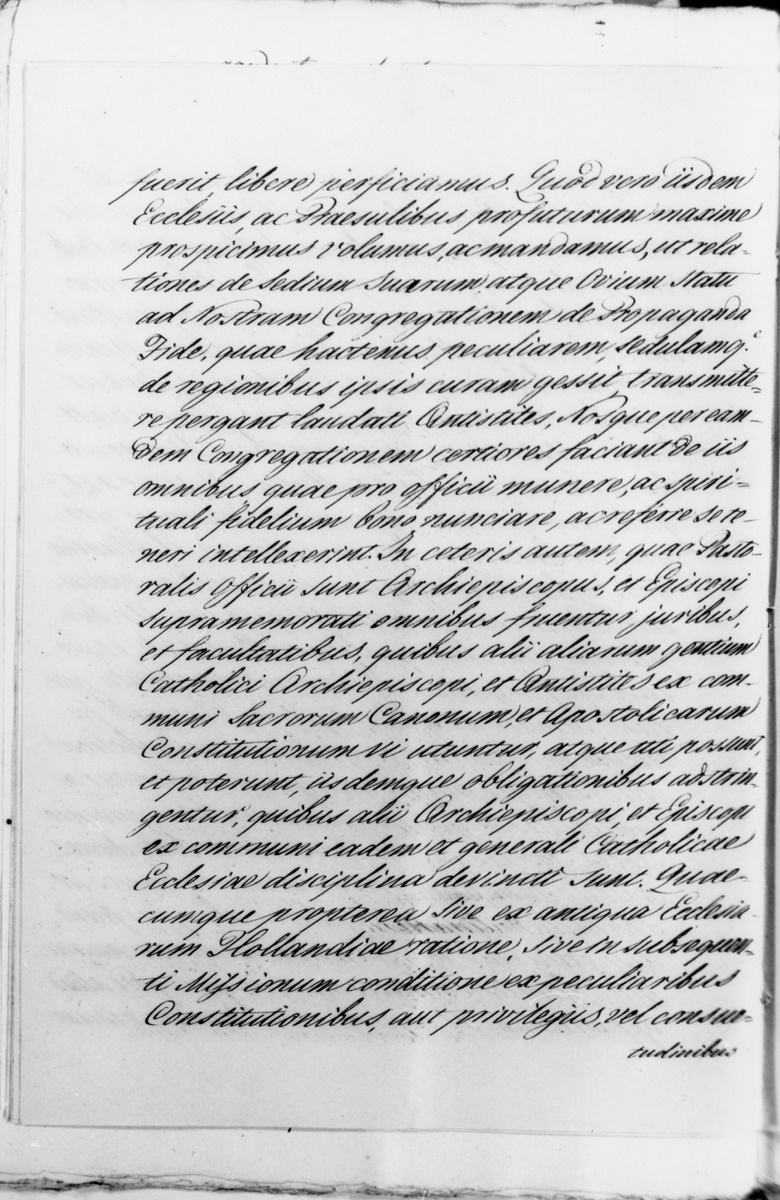 fuerit, libere perficiamus. Quod vero iisdem
Ecclesiis, ac Praesulibus profuturum maxime
prospicimus volumus, ac mandamus, ut rela-
tiones de Sedium Suarum, atque Ovium Statu
ad Nostram Congregationem de Propaganda
Fide, quae hactenus peculiarem, sedulamq.e
de regionibus ipsis curam gessit, transmitte=
re pergant laudati Antistites, Nosque per eam-
dem Congregationem certiores faciant de iis
omnibus quae pro officii munere, ac spiri-
tuali fidelium bono nunciare, ac referre se te-
neri intellexerint. In ceteris autem, quae Pasto-
ralis officii sunt Archiepiscopus, et Episcopi
supramemorati omnibus fruentur juribus,
et facultatibus, quibus alii aliarum gentium
Catholici Archiepiscopi, et Antistites ex com-
muni Sacrorum Canonum, et Apostolicarum
Constitutionum vi utuntur, atque uti possunt,
et poterunt, iisdemque obligationibus adstrin-
gentur, quibus alii Archiepiscopi, et Episcopi
ex communi eadem et generali Catholicae
Ecclesiae disciplina devincti sunt. Quae-
cumque propterea sive ex antiqua Ecclesia
rum Hollandiae ratione, sive in subsequen-
ti Missionum conditione ex peculiaribus
Constitutionibus, aut privilegiis, vel consue=
tudinibus